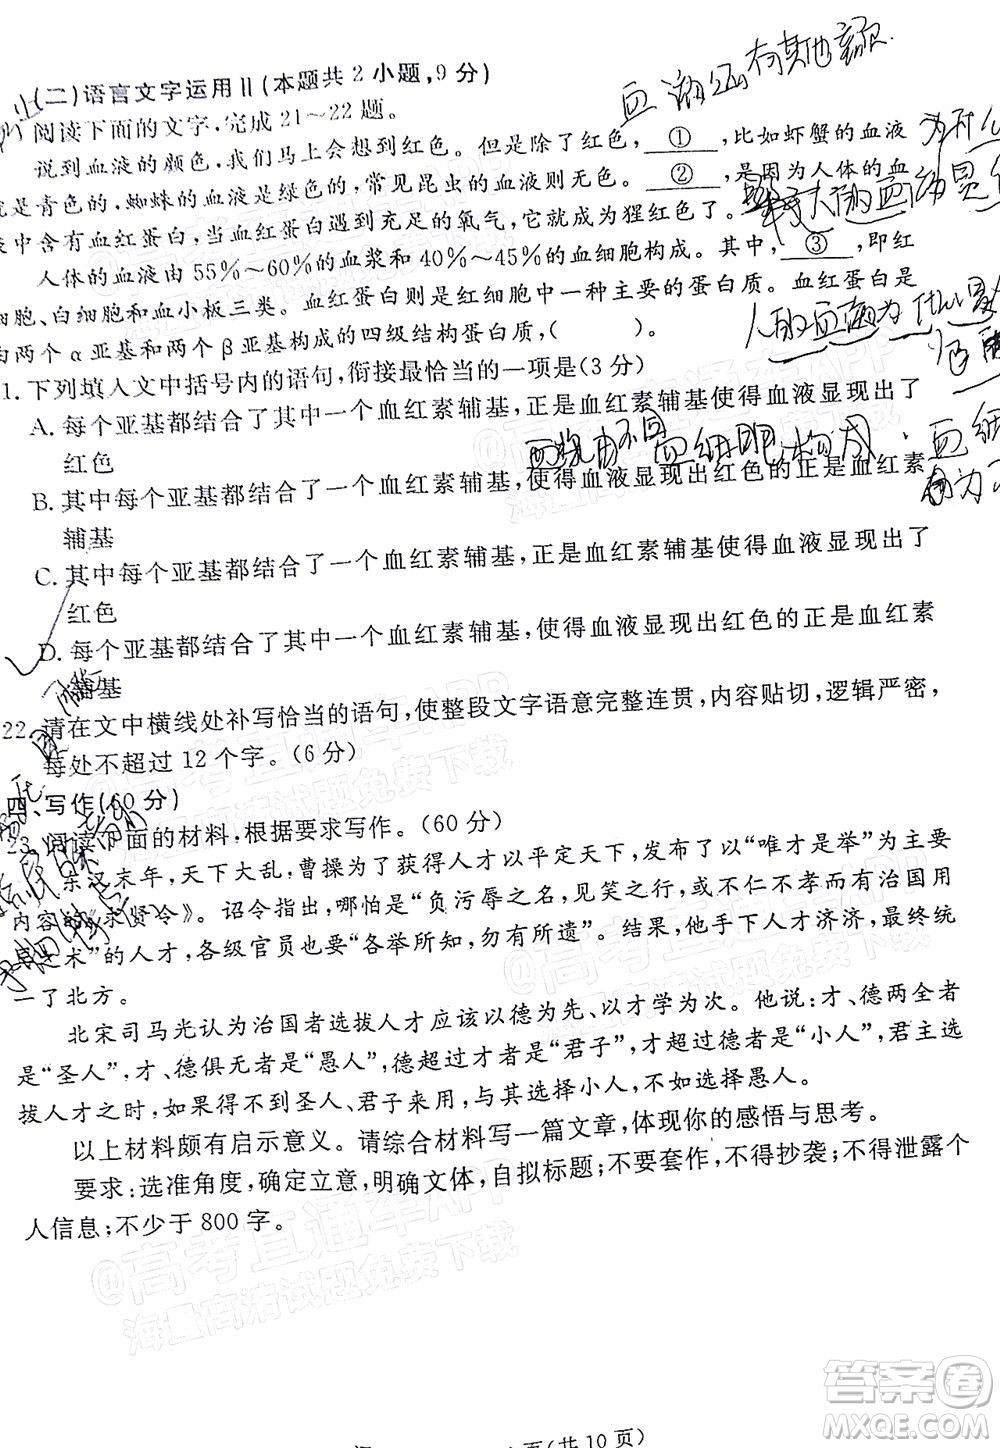 血液还有其他颜
(二)语言文字运用Ⅱ(本题共2小题,9分)
阅读下面的文字,完成21~22题。
说到血液的颜色,我们马上会想到红色。但是除了红色,①,比如虾蟹的血液
就是青色的,蜘蛛的血液是绿色的,常见昆虫的血液则无色。②,是因为人体的血
液中含有血红蛋白,当血红蛋白遇到充足的氧气,它就成为猩红色了。
人体的血液由55%~60%的血浆和40%~45%的血细胞构成。其中,③,即红
细胞、白细胞和血小板三类。血红蛋白则是红细胞中一种主要的蛋白质。血红蛋白是
由两个α亚基和两个β亚基构成的四级结构蛋白质,(  )。
1. 下列填入文中括号内的语句,衔接最恰当的一项是(3分)
A. 每个亚基都结合了其中一个血红素辅基,正是血红素辅基使得血液显现出了
红色
血浆由不同血细胞构成
B. 其中每个亚基都结合了一个血红素辅基,使得血液显现出红色的正是血红素
辅基
C. 其中每个亚基都结合了一个血红素辅基,正是血红素辅基使得血液显现出了
红色
D. 每个亚基都结合了其中一个血红素辅基,使得血液显现出红色的正是血红素
辅基
22. 请在文中横线处补写恰当的语句,使整段文字语意完整连贯,内容贴切,逻辑严密,
每处不超过12个字。(6分)
四、写作(60分)
23. 阅读下面的材料,根据要求写作。(60分)
东汉末年,天下大乱,曹操为了获得人才以平定天下,发布了以“唯才是举”为主要
内容的《求贤令》。诏令指出,哪怕是“负污辱之名,见笑之行,或不仁不孝而有治国用
兵之术”的人才,各级官员也要“各举所知,勿有所遗”。结果,他手下人才济济,最终统
一了北方。
北宋司马光认为治国者选拔人才应该以德为先、以才学为次。他说:才、德两全者
是“圣人”,才、德俱无者是“愚人”,德超过才者是“君子”,才超过德者是“小人”,君主选
拔人才之时,如果得不到圣人、君子来用,与其选择小人,不如选择愚人。
以上材料颇有启示意义。请综合材料写一篇文章,体现你的感悟与思考。
要求:选准角度,确定立意,明确文体,自拟标题;不要套作,不得抄袭;不得泄露个
人信息;不少于800字。
页(共10页)
@高考直通车APP
海量高清试题免费下载
答案圈
MXQE.COM